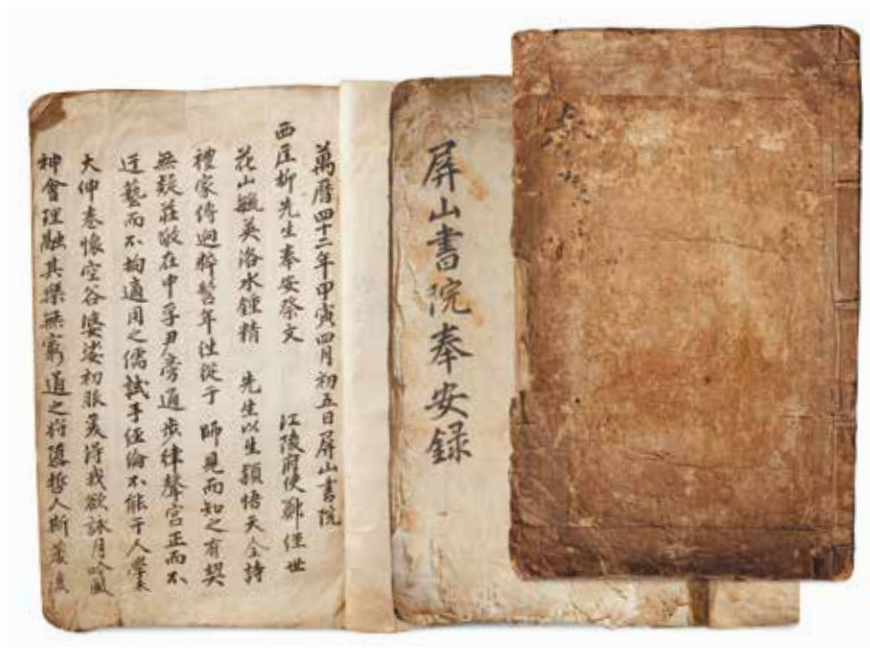 屏山書院奉安錄
萬曆四十二年甲寅四月初五日屏山書院
西厓柳先生奉安祭文 江陵府使鄭經世
花山毓英洛水鍾精 先生以生穎悟天全詩
禮家傳迥粹髫年往從于 師見而知之有契
無疑莊敬在中孚尹旁通步律聲宮正而不
迂藝而不拘適用之儒試手經綸不能于人學未
大伸卷懷空谷婆娑初服爰得我欲詠月吟風
神會理融其樂無窮道之將墜哲人斯萎